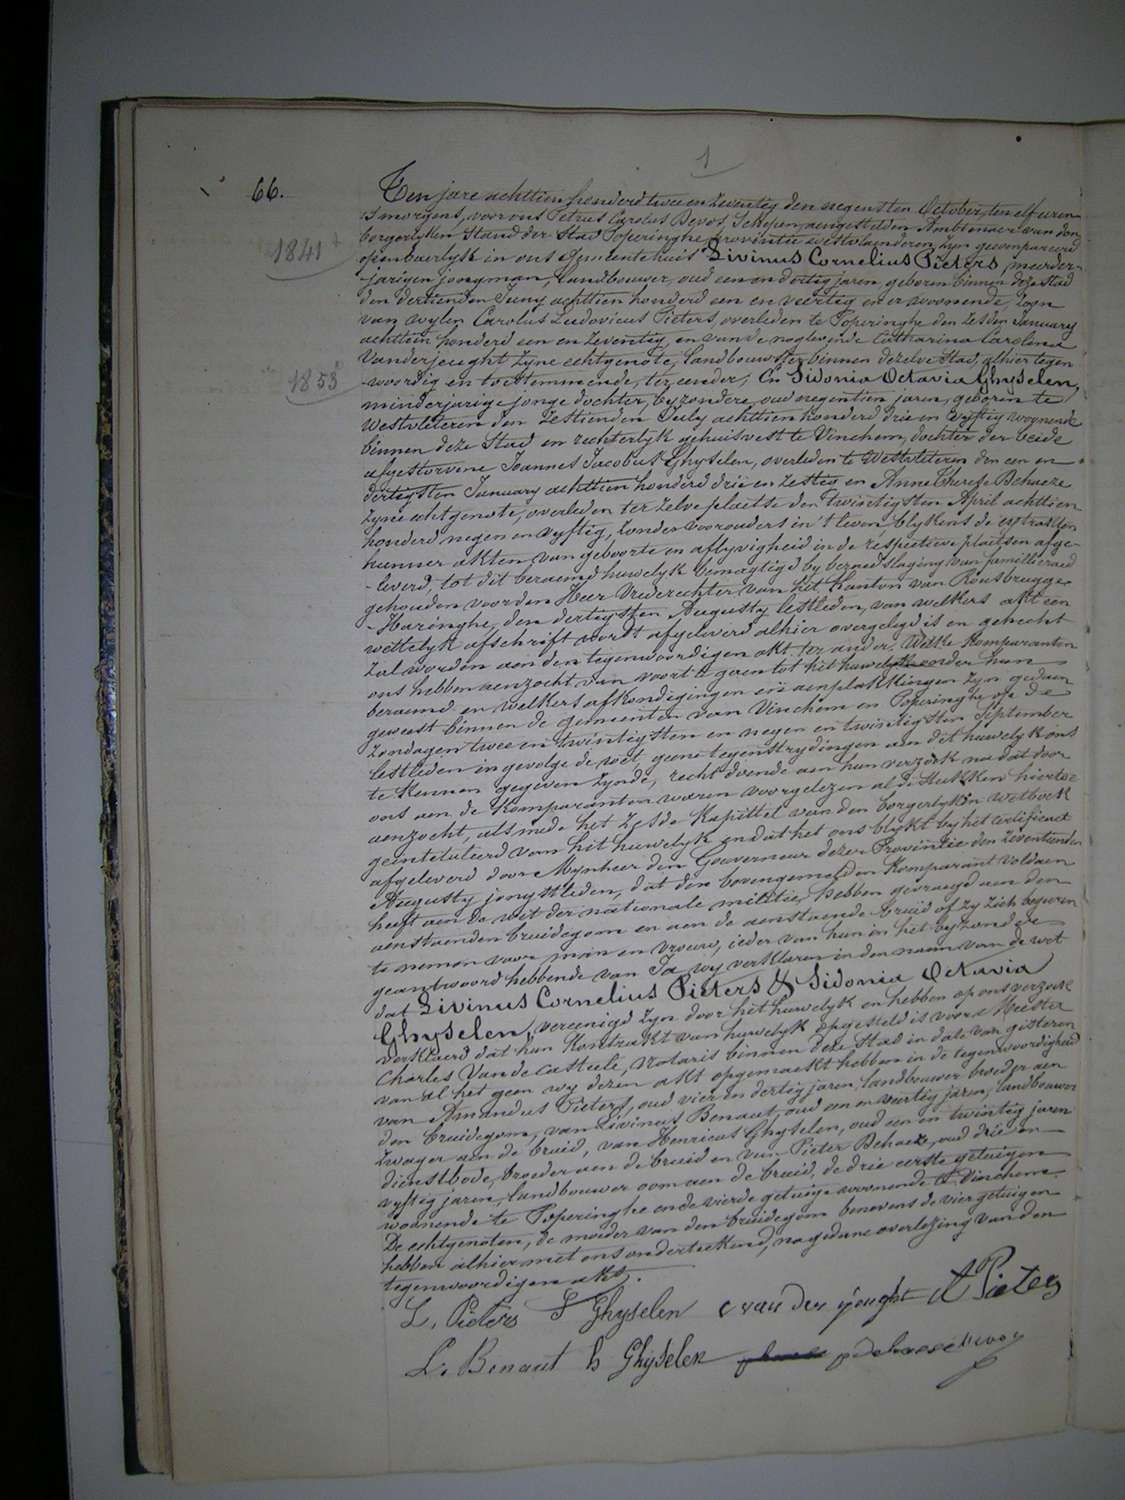 1
66.
Ten jare achttien honderd twee en zeventig den negensten October, ten elf uren
's morgens, voor ons Petrus Carolus Devos Schepen, aengestelden Ambtenaer van den
borgerlyken Stand der Stad Poperinghe provintie westvlaenderen, zyn gecompareerd
1841
openbaerlyk in ons Gemeentehuis Livinus Cornelius Pieters, meerder-
jarigen jongman, landbouwer, oud een en dertig jaren, geboren binnen deze stad
den dertienden Juny achttien honderd een en veertig en er woonende, zoon
van wylen Carolus Ludovicus Pieters, overleden te Poperinghe den zesden January
achttien honderd een en zeventig, en van de nog levende Catharina Carolina
Vanderjeught zyne echtgenote, landbouwster binnen dezelve stad, alhier tegen
1853
-woordig en toestemmende, ter eender, En Sidonia Octavia Ghyselen,
minderjarige jonge dochter, byzondere, oud negentien jaren, geboren te
Westvleteren den zestienden July achttien honderd drie en vyftig woonende
binnen deze Stad en rechterlyk gehuisvest te Vinchem, dochter der beide
afgestorvene Joannes Jacobus Ghyselen, overleden te Westvleteren den een en
dertigsten January achttien honderd drie en zestig en Anne Therese Behaeze
zyne echtgenote, overleden ter zelve plaetse den twintigsten April achttien
honderd negen en vyftig, zonder voorouders in 't leven, blykens de extrakten
hunner akten van geboorte en aflyvigheid in de respectieve plaetsen afge-
-leverd, tot dit beraemd huwelyk bemagtigd by beraedslaging van familieraed
gehouden voor den Heer Vrederechter van het Kanton van Rousbrugge
-Haringhe, den dertigsten Augusty lestleden, van welkers akt een
wettelyk afschrift wordt afgeleverd alhier overgelegd is en gehecht
zal worden aen den tegenwoordigen akt ter ander. Welke komparanten
ons hebben aenzocht van voort te gaen tot het huwelyk onder hun
beraemd en welkers afkondigingen en aenplakkingen zyn gedaen
geweest binnen de gemeenten van Vinchem en Poperinghe op de
zondagen twee en twintigsten en negen en twintigsten September
lestleden in gevolge de wet, geene tegenstrydingen aen dit huwelyk ons
te kennen gegeven zynde, recht doende aen hun verzoek na dat door
ons aen de komparanten waren voorgelezen al de stukken hiertoe
aenzocht, als mede het zesde kapittel van den borgerlyken wetboek
geintituleerd van het huwelyk en dat het ons blykt by het certificaet
afgeleverd door Mynheer den Gouverneur dezer Provintie den zeventienden
Augusty jongstleden, dat den bovengemelden komparant voldaen
heeft aen de wet der nationale militie, hebben gevraegd aen den
aenstaenden bruidegom en aen de aenstaende bruid of zy zich begeeren
te nemen voor man en vrouw, ieder van hun in het byzondere
geantwoord hebbende van Ja wy verklaren in den naam van de wet
dat Livinus Cornelius Pieters & Sidonia Octavia
Ghyselen, vereenigd zyn door het huwelyk en hebben op ons verzoek
verklaerd dat hun Kontrackt van huwelyk opgesteld is voor Meester
Charles Vande Casteele, Notaris binnen deze Stad in date van gisteren
van al het geen wy dezen akt opgemaekt hebben in de tegenwoordigheid
van Amandus Pieters, oud vier en dertig jaren, landbouwer broeder aen
den bruidegom, van Livinus Benaut, oud een en veertig jaren, landbouwer
zwager aen de bruid, van Henricus Ghyselen, oud een en twintig jaren
dienstbode, broeder aen de bruid en van Pieter Behaeze, oud drie en
vyftig jaren, landbouwer oom aen de bruid, de drie eerste getuigen
woonende te Poperinghe en de vierde getuige woonende te Vinchem.
De echtgenoten, de moeder van den bruidegom benevens de vier getuigen
hebben alhier met ons onderteekend, na gedane overlezing van den
tegenwoordigen akt.
L. Pieters S Ghyselen c van der jeught A Pieters
L. Benaut h Ghyselen